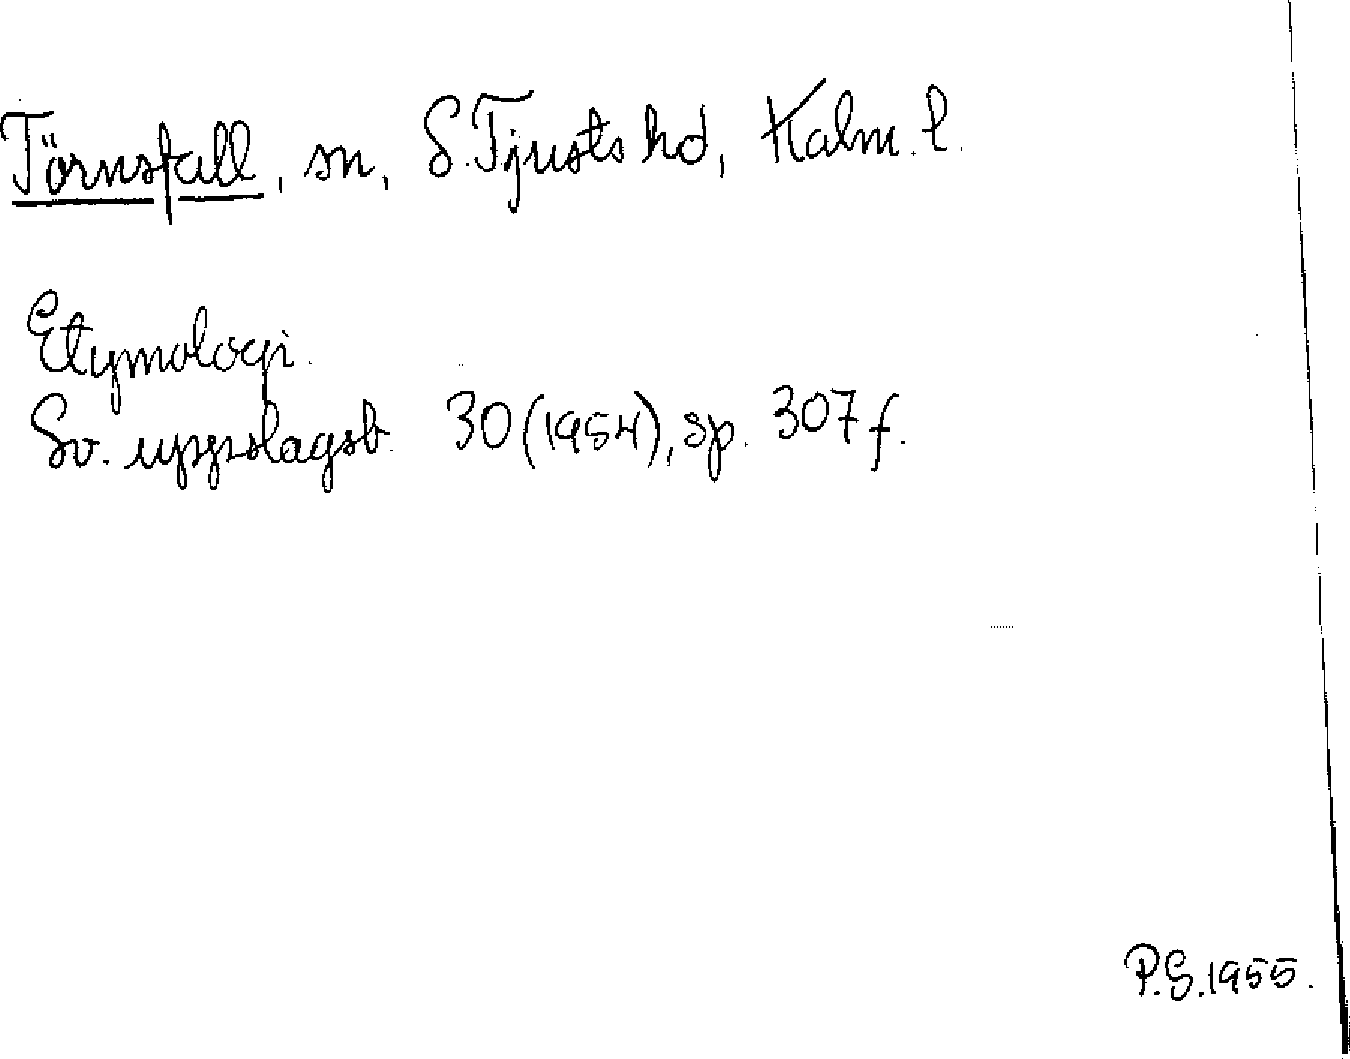 Törnsfall, sn, S. Tjusts hd, Kalm. l.
Etymologi.
Sv. uppslagsb. 30 (1954), sp. 307 f.
P.G. 1955.